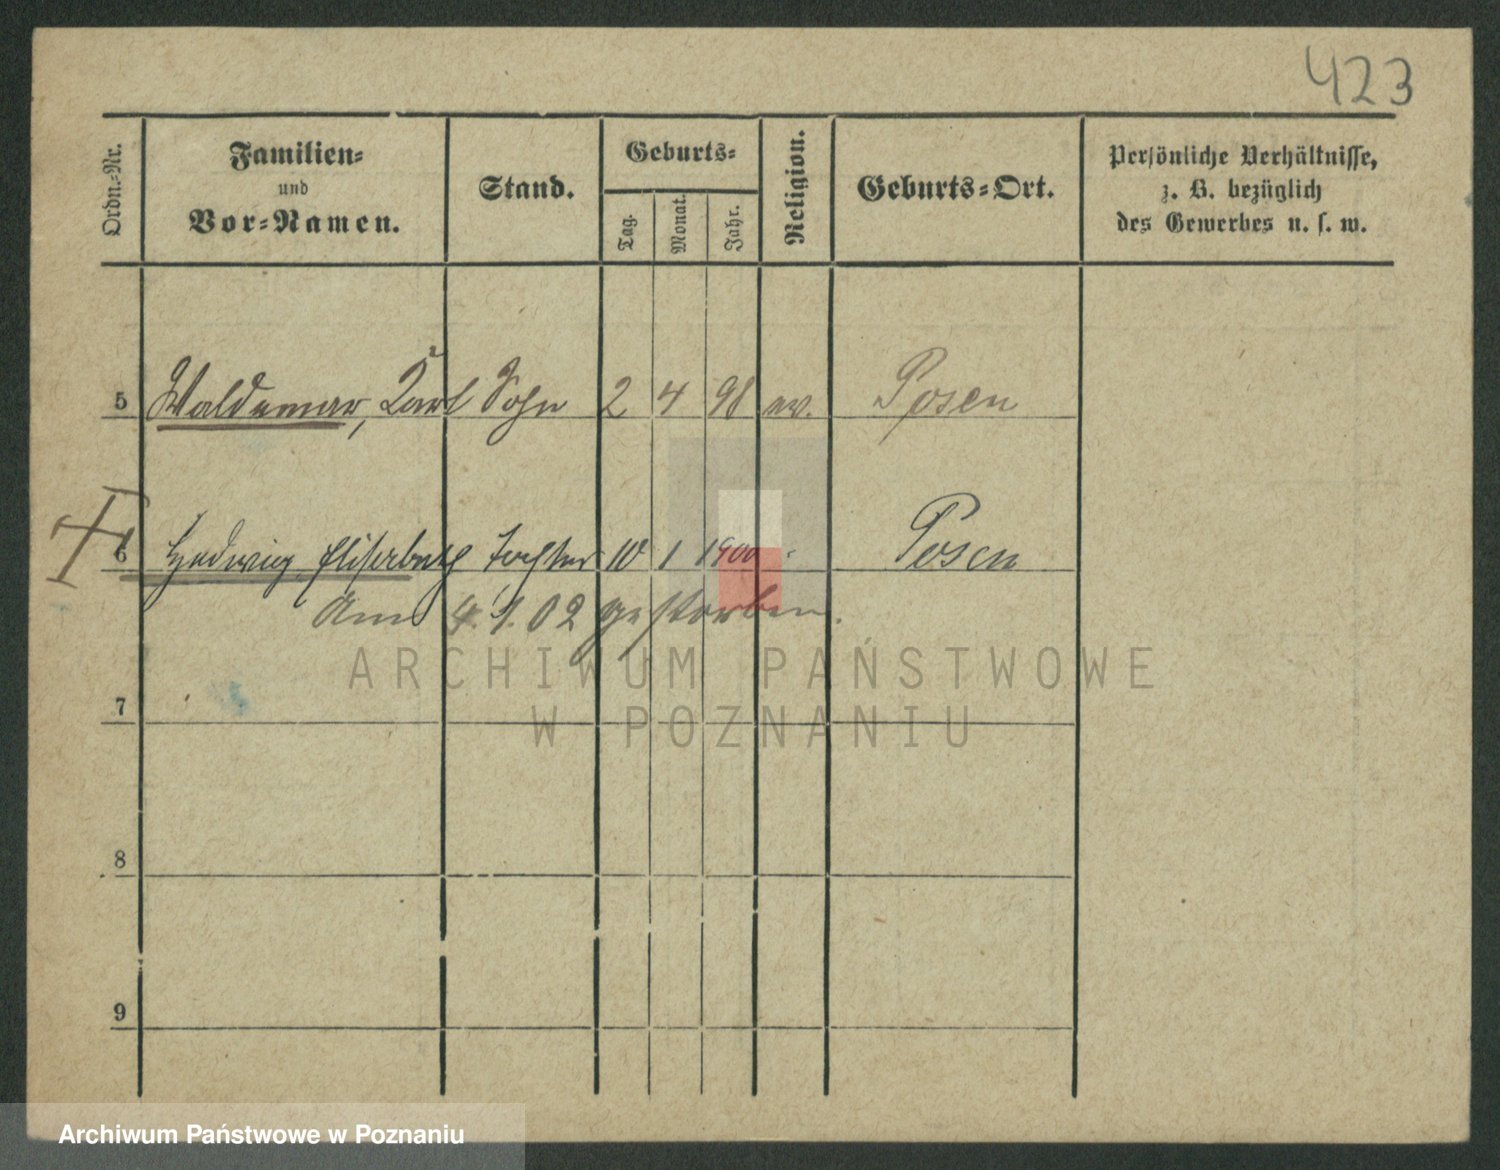 423
Ordn.-Nr.
Familien-
und
Vor-Namen.
Stand.
Geburts-
Tag.
Monat.
Jahr.
Religion.
Geburts-Ort.
Persönliche Verhältnisse,
z. B. bezüglich
des Gewerbes u. s. w.
5 Waldemar, Karl Sohn 2 4 98 ev. Posen
6 Hedwig Elisabeth Tochter 10 1 1900 Posen
Am 4.1.02 gestorben.
7
8
9
ARCHIWUM PAŃSTWOWE
W POZNANIU
Archiwum Państwowe w Poznaniu